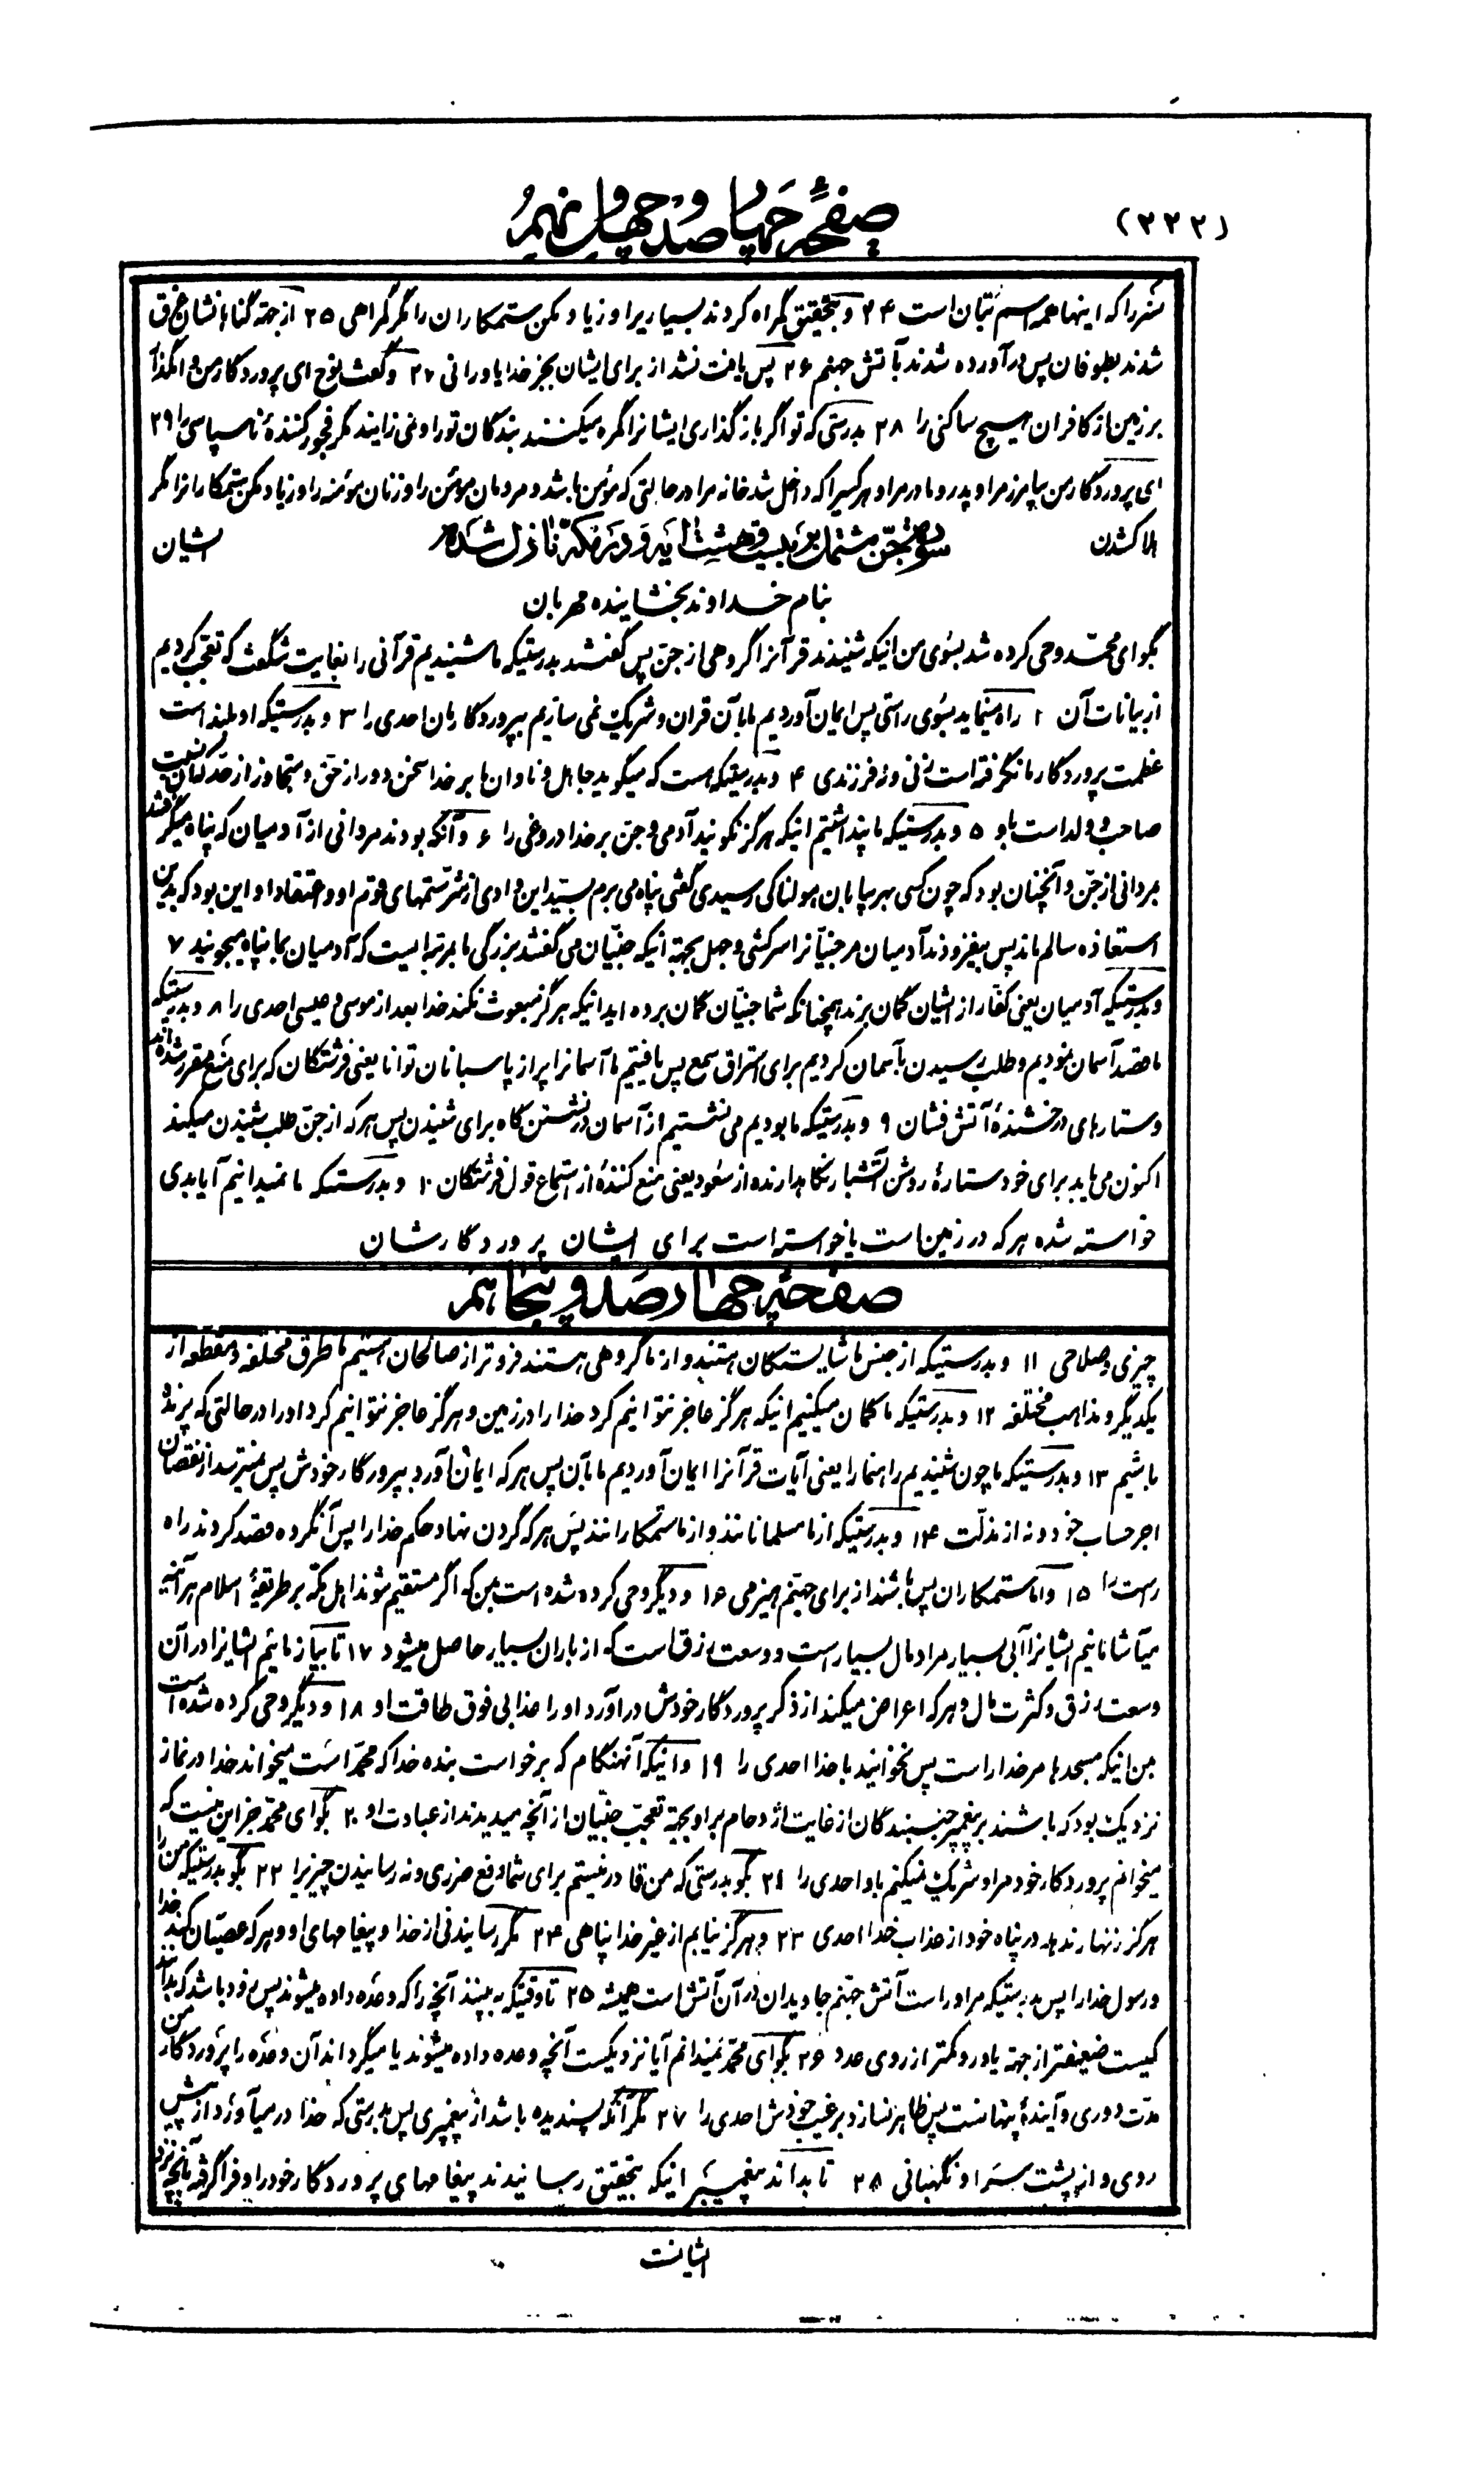 (۲۲۲)
صفحهٔ چهار صد و چهل و نهم
نسر را که اینها همه اسم بتان است ۲۴ و بتحقیق گمراه کردند بسیاریرا و زیاد مکن ستمکاران را مگر گمراهی ۲۵ از جهة گناهانشان غرق
شدند بطوفان پس در آورده شدند بآتش جهنم ۲۶ پس یافت نشد از برای ایشان بجز خدا یاورانی ۲۷ و گفت نوح ای پروردگار من وامگذار
بر زمین از کافران هیچ ساکنی را ۲۸ بدرستی که تو اگر باز گذاری ایشانرا گمره میکنند بندگان تو را و نمی زایند مگر فجور کنندهٔ ناسپاسی را ۲۹
ای پروردگار من بیامرز مرا و پدر و مادر مرا و هر کسیرا که داخل شد خانه مرا در حالتی که مؤمن باشد و مردمان مؤمن را و زنان مؤمنه را و زیاد مکن ستمکارانرا مگر
هلاکشدن سورهٔ جن مشتمل بر بیست و هشت آیه و در مکه نازل شده ایشان
بنام خداوند بخشاینده مهربان
بگو ای محمد وحی کرده شد بسوی من اینکه شنیدند قرآنرا گروهی از جن پس گفتند بدرستیکه ما شنیدیم قرآنی را بغایت شگفت که تعجب کردیم
از بیانات آن ۲ راه مینماید بسوی راستی پس ایمان آوردیم ما بآن قران و شریک نمی سازیم بپروردگارمان احدی را ۳ و بدرستیکه او بلند است
عظمت پروردگار ما نگرفته است زنی و نه فرزندی ۴ و بدرستیکه هست که میگوید جاهل و نادان ما بر خدا سخن دور از حق و متجاوز از حد که آن نسبت
صاحبه و ولد است باو ۵ و بدرستیکه ما پنداشتیم اینکه هرگز نگویند آدمی و جن بر خدا دروغی را ۶ و آنکه بودند مردانی از آدمیان که پناه میگرفتند
بمردانی از جن و آنچنان بود که چون کسی بهر بیابان هولناکی رسیدی گفتی پناه می برم بسید این وادی از شر ستمهای قوم او و اعتقاد او این بود که بدین
استعاذه سالم ماند پس بیفزودند آدمیان مر جنیانرا سرکشی و جهل بجهة اینکه جنیان می گفتند بزرگی ما بمرتبه ایست که آدمیان بما پناه میجویند ۷
و بدرستیکه آدمیان یعنی کفار از ایشان گمان بردند همچنانکه شما جنیان گمان برده اید اینکه هرگز مبعوث نکند خدا بعد از موسی و عیسی احدی را ۸ و بدرستیکه
ما قصد آسمان نمودیم و طلب رسیدن بآسمان کردیم برای استراق سمع پس یافتیم ما آسمانرا پر از پاسبانان توانا یعنی فرشتگان که برای منع مقرر شده اند
و ستارهای درخشندهٔ آتش فشان ۹ و بدرستیکه ما بودیم می نشستیم از آسمان در نشستن گاه برای شنیدن پس هر که از جن طلب شنیدن میکند
اکنون می یابد برای خود ستارهٔ روشن آتشبار نگاهدارنده از صعود یعنی منع کنندهٔ از استماع قول فرشتگان ۱۰ و بدرستیکه ما نمیدانیم آیا بدی
خواسته شده هر که در زمین است یا خواسته است برای ایشان پروردگارشان
صفحهٔ چهار صد و پنجاهم
چیزی و صلاحی ۱۱ و بدرستیکه از جنس ما شایستگان هستند و از ما گروهی هستند فروتر از صالحان هستیم ما طرق مختلفه و منقطعه از
یکدیگر و مذاهب مختلفه ۱۲ و بدرستیکه ما گمان میکنیم اینکه هرگز عاجز نتوانیم کرد خدا را در زمین و هرگز عاجز نتوانیم کرد او را در حالتی که پرنده
باشیم ۱۳ و بدرستیکه ما چون شنیدیم راهنما را یعنی آیات قرآنرا ایمان آوردیم ما بآن پس هر که ایمان آورد بپرورگار خودش پس نمیترسد از نقصان
اجر حساب خود و نه از مذلت ۱۴ و بدرستیکه از ما مسلمانانند و از ما ستمکارانند پس هر که گردن نهاد حکم خدا را پس آنگروه قصد کردند راه
راست را ۱۵ و اما ستمکاران پس باشند از برای جهنم هیزمی ۱۶ و دیگر وحی کرده شده است بمن که اگر مستقیم شوند اهل مکه بر طریقهٔ اسلام هر آینه
میآشامانیم ایشانرا آبی بسیار مراد مال بسیار است و وسعت رزق است که از باران بسیار حاصل میشود ۱۷ تا بیازمائیم ایشانرا در آن
وسعت رزق و کثرت مال و هر که اعراض میکند از ذکر پروردگار خودش در آورد او را عذابی فوق طاقت او ۱۸ و دیگر وحی کرده شده است
بمن اینکه مسجدها مر خدا راست پس نخوانید با خدا احدی را ۱۹ و اینکه آنهنگام که برخواست بنده خدا که محمد است میخواند خدا در نماز
نزدیک بود که باشند بر پیغمبر چسبندگان از غایت ازدحام بر او بجهة تعجب جنیان از آنچه میدیدند از عبادت او ۲۰ بگو ای محمد جز این نیست که
میخوانم پروردگار خود مرا و شریک نمیکنم باو احدی را ۲۱ بگو بدرستی که من قادر نیستم برای شما دفع ضرری و نه رسانیدن چیزیرا ۲۲ بگو بدرستیکه من را
هرگز زنهار ندهد در پناه خود از عذاب خدا احدی ۲۳ و هرگز نیابم از غیر خدا پناهی ۲۴ مگر رسانیدنی از خدا و پیغامهای او و هر که عصیان کند خدا
و رسول خدا را پس بدرستیکه مر او راست آتش جهنم جاویدان در آن آتش است همیشه ۲۵ تا وقتیکه به بینند آنچه را که وعده داده میشوند پس زود باشد که بدانند
کیست ضعیفتر از جهة یاور و کمتر از روی عدد ۲۶ بگو ای محمد نمیدانم آیا نزدیکست آنچه وعده داده میشوند یا میگرداند آن وعده را پروردگار من
مدت دوری و آیندهٔ پنهانست پس ظاهر نسازد بر غیب خودش احدی را ۲۷ مگر آنکه پسندیده باشد از پیغمبری پس بدرستی که خدا در میآورد از پیش
روی و از پشت سر او نگهبانی ۲۸ تا بداند پیغمبر اینکه بتحقیق رسانیدند پیغامهای پروردگار خود را و فرا گرفته بآنچه نزد
ایشانست